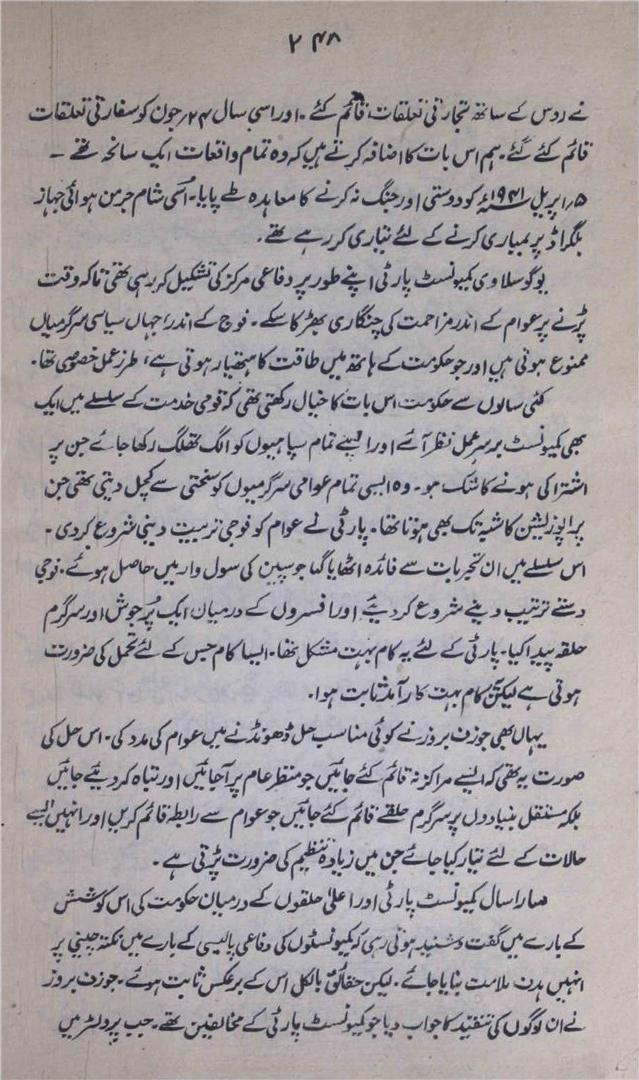 ۲۴۸
نے روس کے ساتھ تجارتی تعلقات قائم کئے ۔ اور اسی سال ۲۴؍ جون کو سفارتی تعلقات
قائم کئے گئے۔ ہم اس بات کا اضافہ کرتے ہیں کہ وہ تمام واقعات ایک سانحہ تھے ۔
۵؍ اپریل ۱۹۴۱ء کو دوستی اور جنگ نہ کرنے کا معاہدہ طے پایا۔ اُسی شام جرمن ہوائی جہاز
بلگراڈ پر بمباری کرنے کے لئے تیاری کر رہے تھے۔
یوگوسلاوی کمیونسٹ پارٹی اپنے طور پر دفاعی مرکز کی تشکیل کر رہی تھی تاکہ وقت
پڑنے پر عوام کے اندر مزاحمت کی چنگاری بھڑکا سکے۔ فوج کے اندر جہاں سیاسی سرگرمیاں
ممنوع ہوتی ہیں اور جو حکومت کے ہاتھ میں طاقت کا ہتھیار ہوتی ہے، طرزِ عمل خصوصی تھا۔
کئی سالوں سے حکومت اس بات کا خیال رکھتی تھی کہ قومی خدمت کے سلسلے میں ایک
بھی کمیونسٹ برسرِ عمل نظر آئے اور ایسے تمام سپاہیوں کو الگ تھلگ رکھا جائے جن پر
اشتراکی ہونے کا شک ہو۔ وہ ایسی تمام عوامی سرگرمیوں کو سختی سے کچل دیتی تھی جن
پر اپوزیشن کا شبہ تک بھی ہوتا تھا۔ پارٹی نے عوام کو فوجی تربیت دینی شروع کر دی ۔
اس سلسلے میں ان تجربات سے فائدہ اٹھایا گیا جو سپین کی سول وار میں حاصل ہوئے۔ فوجی
دستے ترتیب دینے شروع کر دیئے اور افسروں کے درمیان ایک پُرجوش اور سرگرم
حلقہ پیدا کیا۔ پارٹی کے لئے یہ کام بہت مشکل تھا۔ ایسا کام جس کے لئے تحمل کی ضرورت
ہوتی ہے لیکن کام بہت کارآمد ثابت ہوا۔
یہاں بھی جوزف بروز نے کوئی مناسب حل ڈھونڈنے میں عوام کی مدد کی۔ اس حل کی
صورت یہ تھی کہ ایسے مراکز نہ قائم کئے جائیں جو منظرِ عام پر آ جائیں اور تباہ کر دیئے جائیں
بلکہ مستقل بنیادوں پر سرگرم حلقے قائم کئے جائیں جو عوام سے رابطہ قائم کریں اور انہیں ایسے
حالات کے لئے تیار کیا جائے جن میں زیادہ تنظیم کی ضرورت پڑتی ہے ۔
سارا سال کمیونسٹ پارٹی اور اعلیٰ حلقوں کے درمیان حکومت کی اس کوشش
کے بارے میں گفت و شنید ہوتی رہی کہ کمیونسٹوں کی دفاعی پالیسی کے بارے میں نکتہ چینی پر
انہیں ہدفِ ملامت بنایا جائے۔ لیکن حقائق بالکل اس کے برعکس ثابت ہوئے۔ جوزف بروز
نے ان لوگوں کی تنقید کا جواب دیا جو کمیونسٹ پارٹی کے مخالفین تھے۔ جب پرولٹر میں